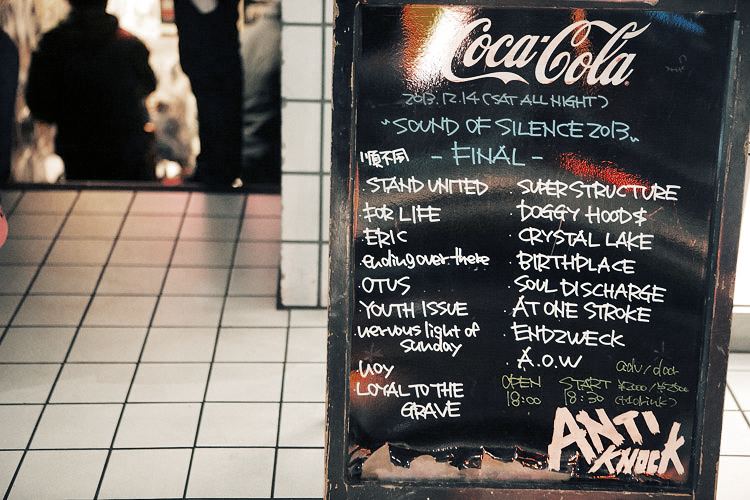 Coca-Cola
2013.12.14 (SAT ALL NIGHT)
"SOUND OF SILENCE 2013"
- FINAL -
順不同
・STAND UNITED
・FOR LIFE
・ERIC
・ending over there
・OTUS
・YOUTH ISSUE
・nervous light of
sunday
・uoy
・LOYAL TO THE
GRAVE
・SUPER STRUCTURE
・DOGGY HOOD$
・CRYSTAL LAKE
・BIRTHPLACE
・SOUL DISCHARGE
・AT ONE STROKE
・ENDZWECK
・A.O.W
adv/door
OPEN START
18:00 18:30
ANTI
KNOCK